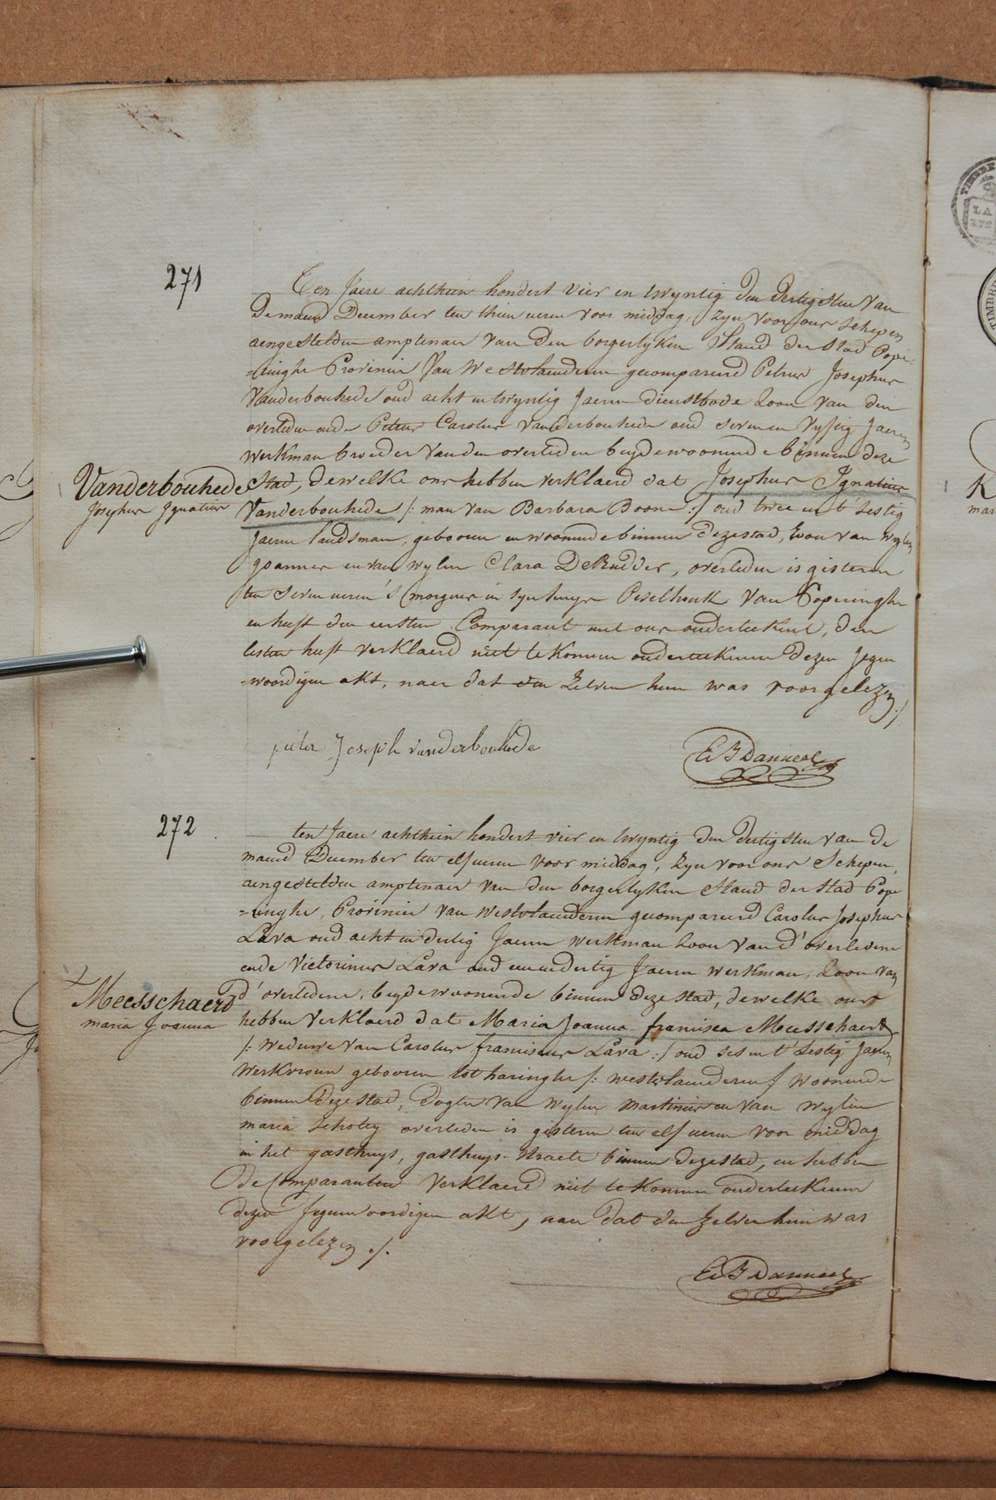 271
Ten Jaere achthien hondert vier en twyntig den dertigsten van
De maend December ten thien uren voor middag, zyn voor ons schepen
aengestelden amptenaer van den borgerlyken Stand der stad Pope
-ringhe Provincie Van Westvlaenderen gecompareerd Petrus Josephus
Vanderbouhede oud acht en twyntig Jaeren dienstbode zoon van den
overleden ende Petrus Carolus Vanderbouhede oud seven en vyftig Jaeren
werkman broeder van den overleden beyde woonende binnen deze
Vanderbouhede
Josephus Ignatius
Stad, dewelke ons hebben verklaerd dat Josephus Ignatius
Vanderbouhede /: man van Barbara Boone :/ oud twee en t'sestig
Jaeren landsman, gebooren en woonende binnen deze stad, zoon van wylen
Joannes en van wylen Clara DeRudder, overleden is gisteren
ten seven uren 's morgens in syn huys Peselhoek Van Poperinghe
en heeft den eersten Comparant met ons onderteekent, den
lesten heeft verklaerd niet te konnen onderteekenen dezen Jegen
-woordigen akt, naer dat den zelven hem was voorgelezen ./.
pieter Joseph vanderbouhede
272
ten Jaere achthien hondert vier en twyntig den dertigsten van de
maend December ten elf uren voor middag, zyn voor ons Schepen
aengestelden amptenaer van den borgerlyken Stand der stad Pope
-ringhe, Provincie van westvlaenderen gecompareerd Carolus Josephus
Lava oud acht en dertig Jaeren werkman zoon van d'overledene
ende Victorinus Lava oud een en dertig Jaeren werkman, zoon van
Meesschaert
maria Joanna
d'overledene, beyde woonende binnen deze stad, dewelke ons
hebben verklaerd dat Maria Joanna francisca Meesschaert
/: Weduwe van Carolus franciscus Lava :/ oud ses en t'sestig Jaeren
werkvrouw gebooren tot haringhe /: westvlaenderen :/ woonende
binnen deze stad, dogter van wylen Martinus en van wylen
maria Schotey overleden is gisteren ten elf uren voor middag
in het gasthuys, gasthuys-straete binnen deze stad, en hebben
de Comparanten verklaerd niet te konnen onderteekenen
dezen Jegenwoordigen akt, naer dat den zelven hun was
voorgelezen ./.